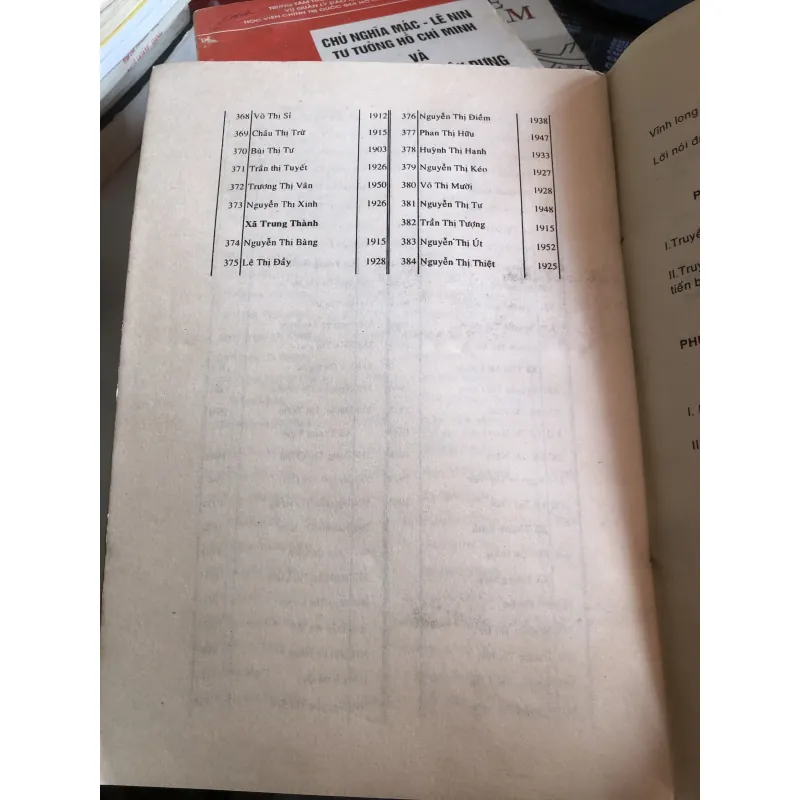 TRUNG TÂM
HỌC VIỆN CHÍNH TRỊ QUỐC GIA
CHỦ NGHĨA MÁC - LÊ NIN
TƯ TƯỞNG HỒ CHÍ MINH
VÀ
DỰNG
368 Võ Thị Sỉ 1912
369 Châu Thị Trừ 1915
370 Bùi Thị Tư 1903
371 Trần thị Tuyết 1926
372 Trương Thị Vân 1950
373 Nguyễn Thị Xinh 1926
Xã Trung Thành
374 Nguyễn Thị Bàng 1915
375 Lê Thị Đầy 1928
376 Nguyễn Thị Điểm 1938
377 Phan Thị Hữu 1947
378 Huỳnh Thị Hạnh 1933
379 Nguyễn Thị Kéo 1927
380 Võ Thị Mười 1928
381 Nguyễn Thị Tư 1948
382 Trần Thị Tượng 1915
383 Nguyễn Thị Út 1952
384 Nguyễn Thị Thiệt 1925
Vĩnh long
Lời nói
I.Truyề
II.Truy
tiến b
I.
II